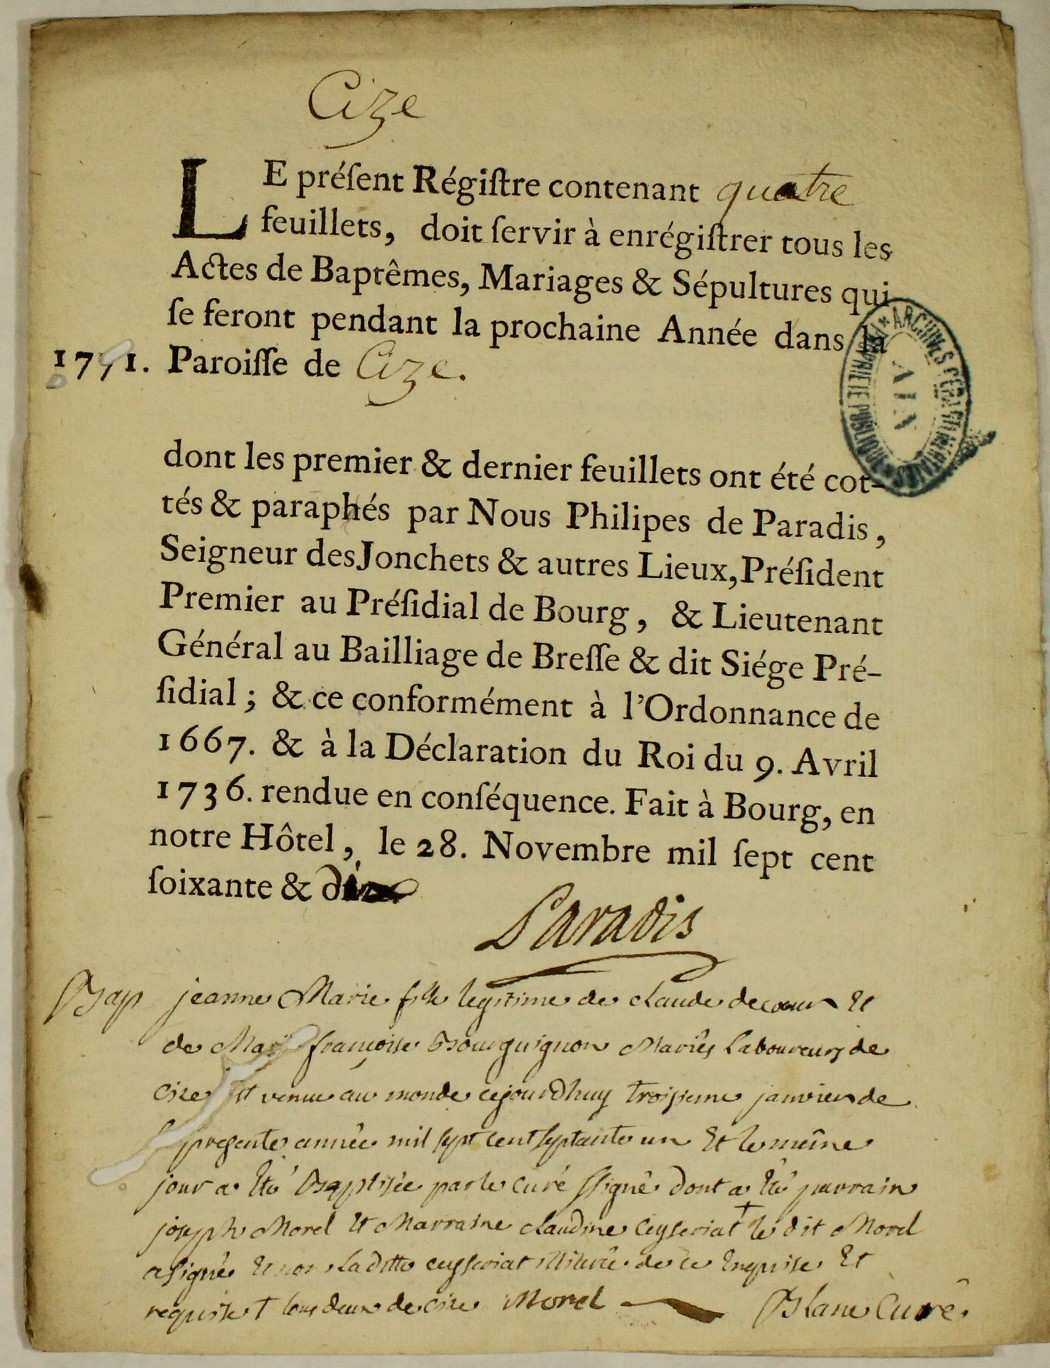 Cize
LE préſent Régiſtre contenant quatre
feuillets, doit ſervir à enrégiſtrer tous les
Actes de Baptêmes, Mariages & Sépultures qui
ſe feront pendant la prochaine Année dans la
1771. Paroiſſe de Cize.
dont les premier & dernier feuillets ont été cot-
tés & paraphés par Nous Philipes de Paradis,
Seigneur des Jonchets & autres Lieux, Préſident
Premier au Préſidial de Bourg, & Lieutenant
Général au Bailliage de Breſſe & dit Siége Pré-
ſidial; & ce conformément à l'Ordonnance de
1667. & à la Déclaration du Roi du 9. Avril
1736. rendue en conſéquence. Fait à Bourg, en
notre Hôtel, le 28. Novembre mil ſept cent
ſoixante & dix
Paradis
Bap jeanne Marie fille legitime de claude decœur Et
de Marie françoise Bourguignon Mariés Laboureurs de
cize Est venue au monde cejourdhuy troisieme janvier de
presente année mil sept cent septante un Et le même
jour a Eté Baptisée par le curé ssigné dont a Eté parrain
joseph Morel Et Marraine claudine ceyseriat † le dit Morel
a signé Et non Laditte ceyseriat illiterée de ce Enquise Et
requise † tous deux de cize Morel Blanc Curé.